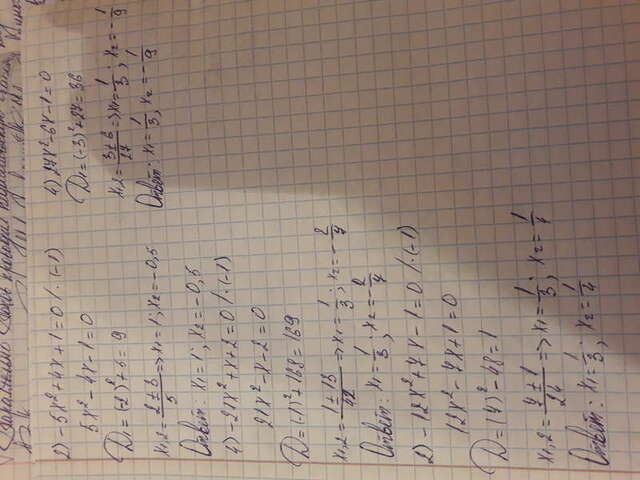 2) -5x²+4x+1=0 /·(-1)
5x²-4x-1=0
D₁=(-2)²+5=9
x₁,₂=(2±3)/5 => x₁=1; x₂=-0,5
Ответ: x₁=1; x₂=-0,5
4) -21x²+x+2=0 /·(-1)
21x²-x-2=0
D=(-1)²+168=169
x₁,₂=(1±13)/42 => x₁=1/3; x₂=-2/7
Ответ: x₁=1/3; x₂=-2/7
2) -12x²+7x-1=0 /·(-1)
12x²-7x+1=0
D=(7)²-48=1
x₁,₂=(7±1)/24 => x₁=1/3; x₂=1/4
Ответ: x₁=1/3; x₂=1/4
4) 27x²-6x-1=0
D₁=(-3)²+27=36
x₁,₂=(3±6)/27 => x₁=1/3; x₂=-1/9
Ответ: x₁=1/3; x₂=-1/9